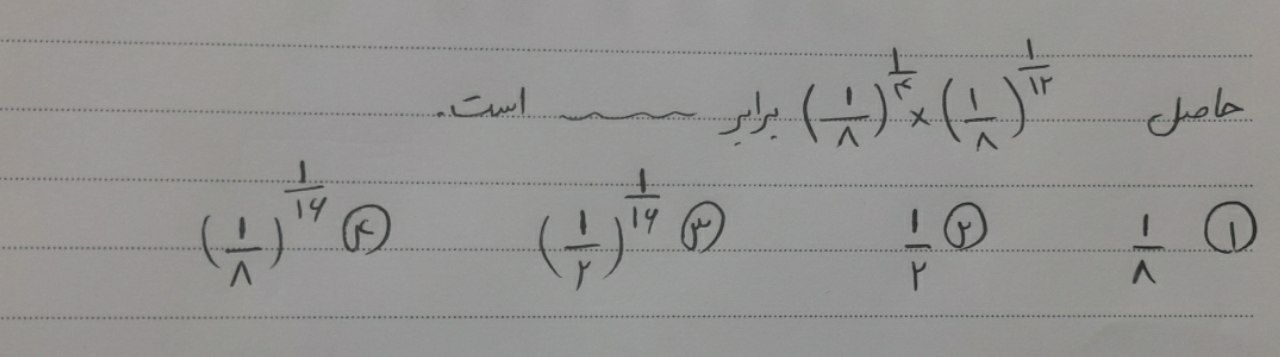 حاصل (۱/۸)^(۱/۱۲) × (۱/۸)^(۱/۴) برابر ــــــ است.
① ۱/۸ ② ۱/۲ ③ (۱/۲)^(۱/۱۶) ④ (۱/۸)^(۱/۱۶)